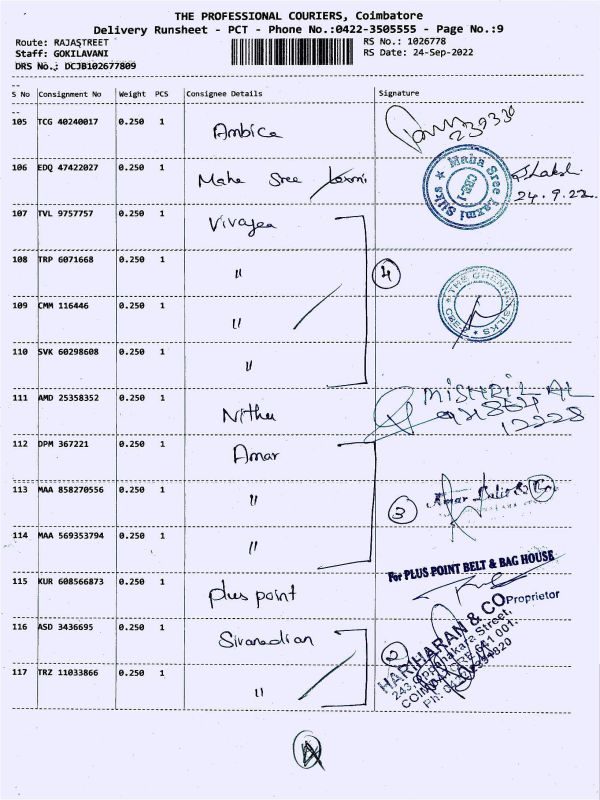 THE PROFESSIONAL COURIERS, Coimbatore
Delivery Runsheet - PCT - Phone No.:0422-3505555 - Page No.:9
Route: RAJASTREET
RS No.: 1026778
Staff: GOKILAVANI
RS Date: 24-Sep-2022
DRS No.: DCJB102677809
S No Consignment No Weight PCS Consignee Details Signature
105 TCG 40240017 0.250 1 Ambica
239330
106 EDQ 47422027 0.250 1 Maha Sree
Maha Sree Laxmi Silks
CBE-1
24.9.22
107 TVL 9757757 0.250 1
108 TRP 6071668 0.250 1 "
4
THE CHENNAI SILKS
CBE-1
109 CMM 116446 0.250 1 "
110 SVK 60298608 0.250 1 "
111 AMD 25358352 0.250 1 Nithu
MISHRILAL
12228
112 DPM 367221 0.250 1 Amar
113 MAA 858270556 0.250 1 "
3
Amar
114 MAA 569353794 0.250 1 "
For PLUS POINT BELT & BAG HOUSE
115 KUR 608566873 0.250 1 plus point
Proprietor
116 ASD 3436695 0.250 1
2
HARIHARAN & CO
243, Oppanakara Street,
COIMBATORE-641 001.
117 TRZ 11033866 0.250 1 "